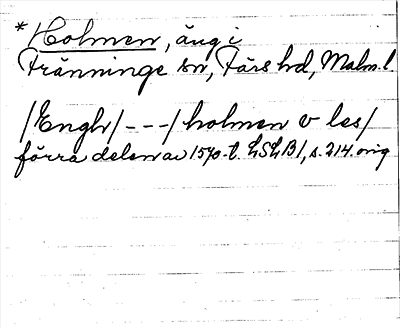 * Holmen, äng i
Tränninge sn, Färs hd, Malm. l.
/Engh/ --- / holmen v les/
förra delen av 1570-t. LSLB1, s. 214. orig